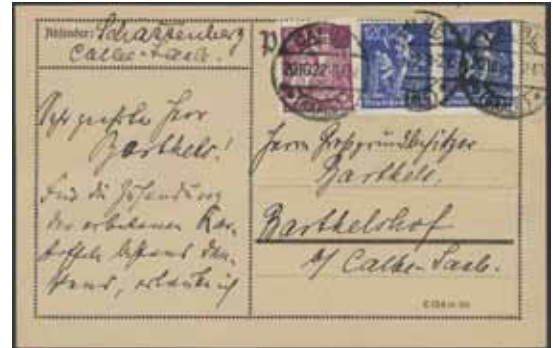 Absender: Schattenberg
Calbe-Saale.
Sehr geehrter Herr
Barthels!
Für die Zusendung
der erbetenen Kar-
toffeln bestens dan-
kend, erlaube ich
20.10.22
Herrn Großgrundbesitzer
Barthels,
Barthelshof
a/ Calbe-Saale.